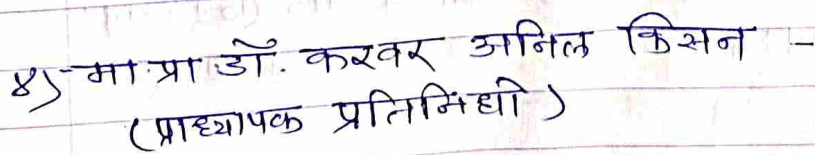 ४) मा.प्रा डॉ. करवर अनिल किसन -
(प्राध्यापक प्रतिनिधी)